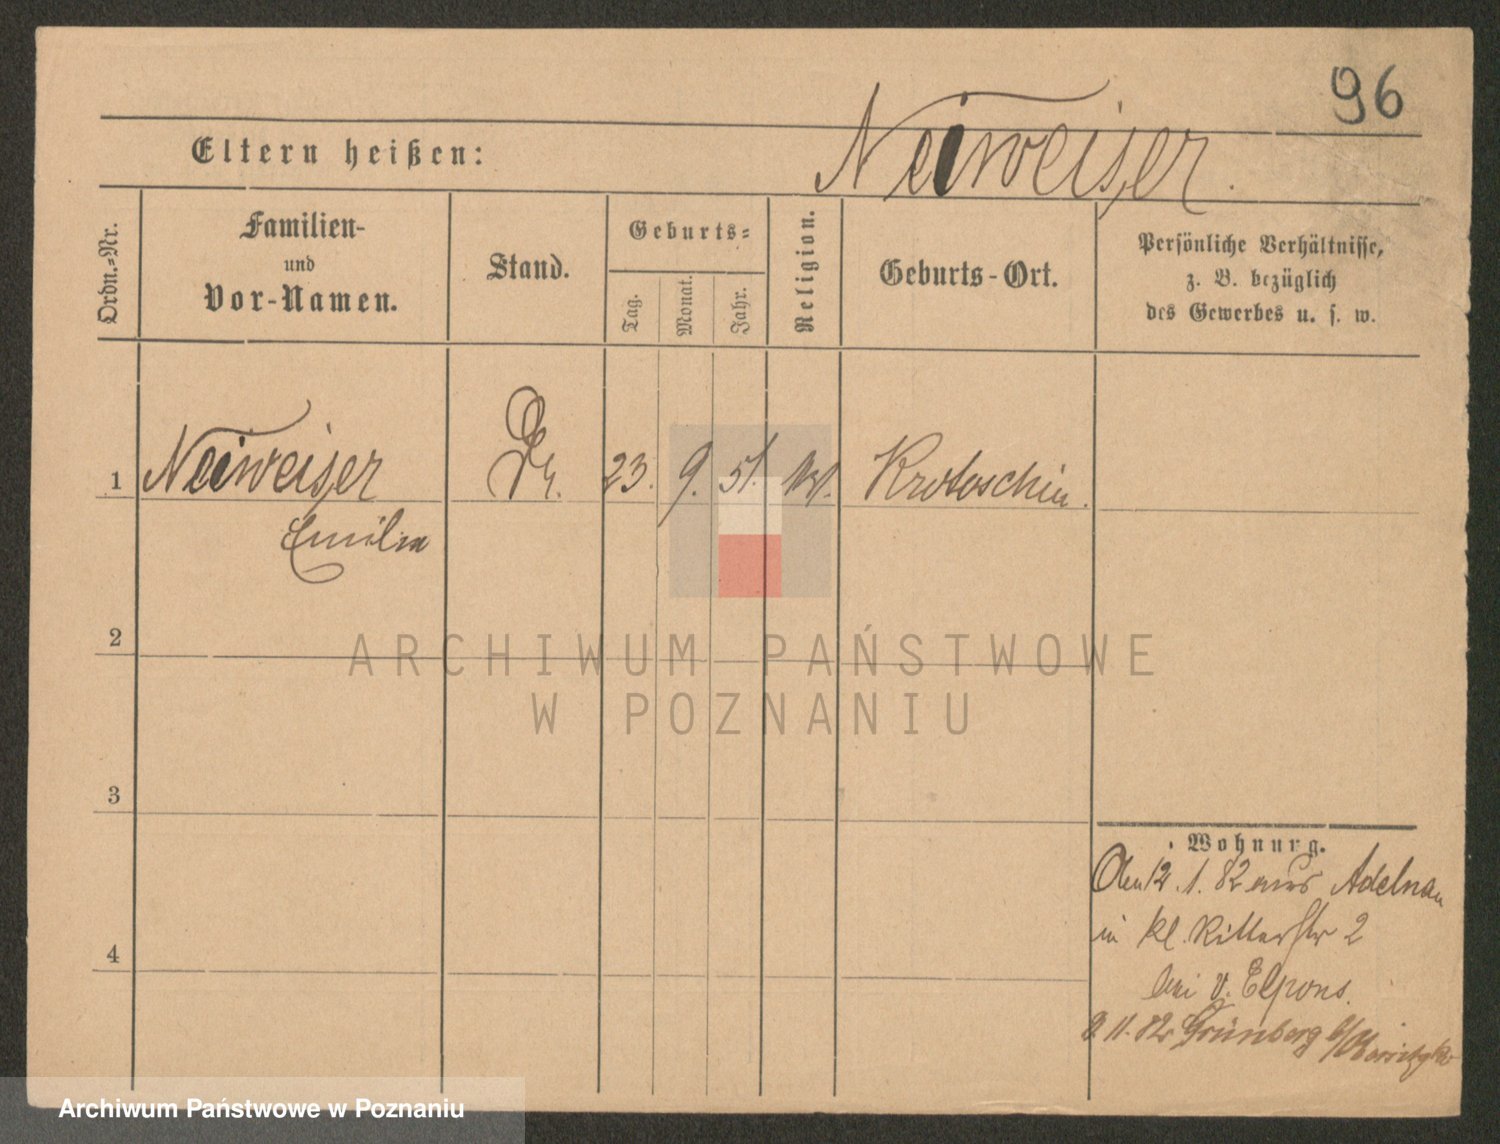 96
Eltern heißen: Neiweiser.
Ordn.-Nr.
Familien-
und
Vor-Namen.
Stand.
Geburts-
Tag.
Monat.
Jahr.
Religion.
Geburts-Ort.
Persönliche Verhältnisse,
z. B. bezüglich
des Gewerbes u. s. w.
1 Neiweiser 23. 9. 51. Krotoschin.
Emilie
2
ARCHIWUM PAŃSTWOWE
W POZNANIU
3
Wohnung.
Den 12. 1. 82 aus Adelnau
in kl. Ritterstr 2
bei v. Elpons.
11. 82 Grünberg
4
Archiwum Państwowe w Poznaniu